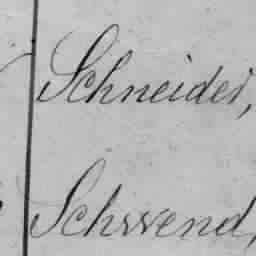 Schneider,
Schwend,